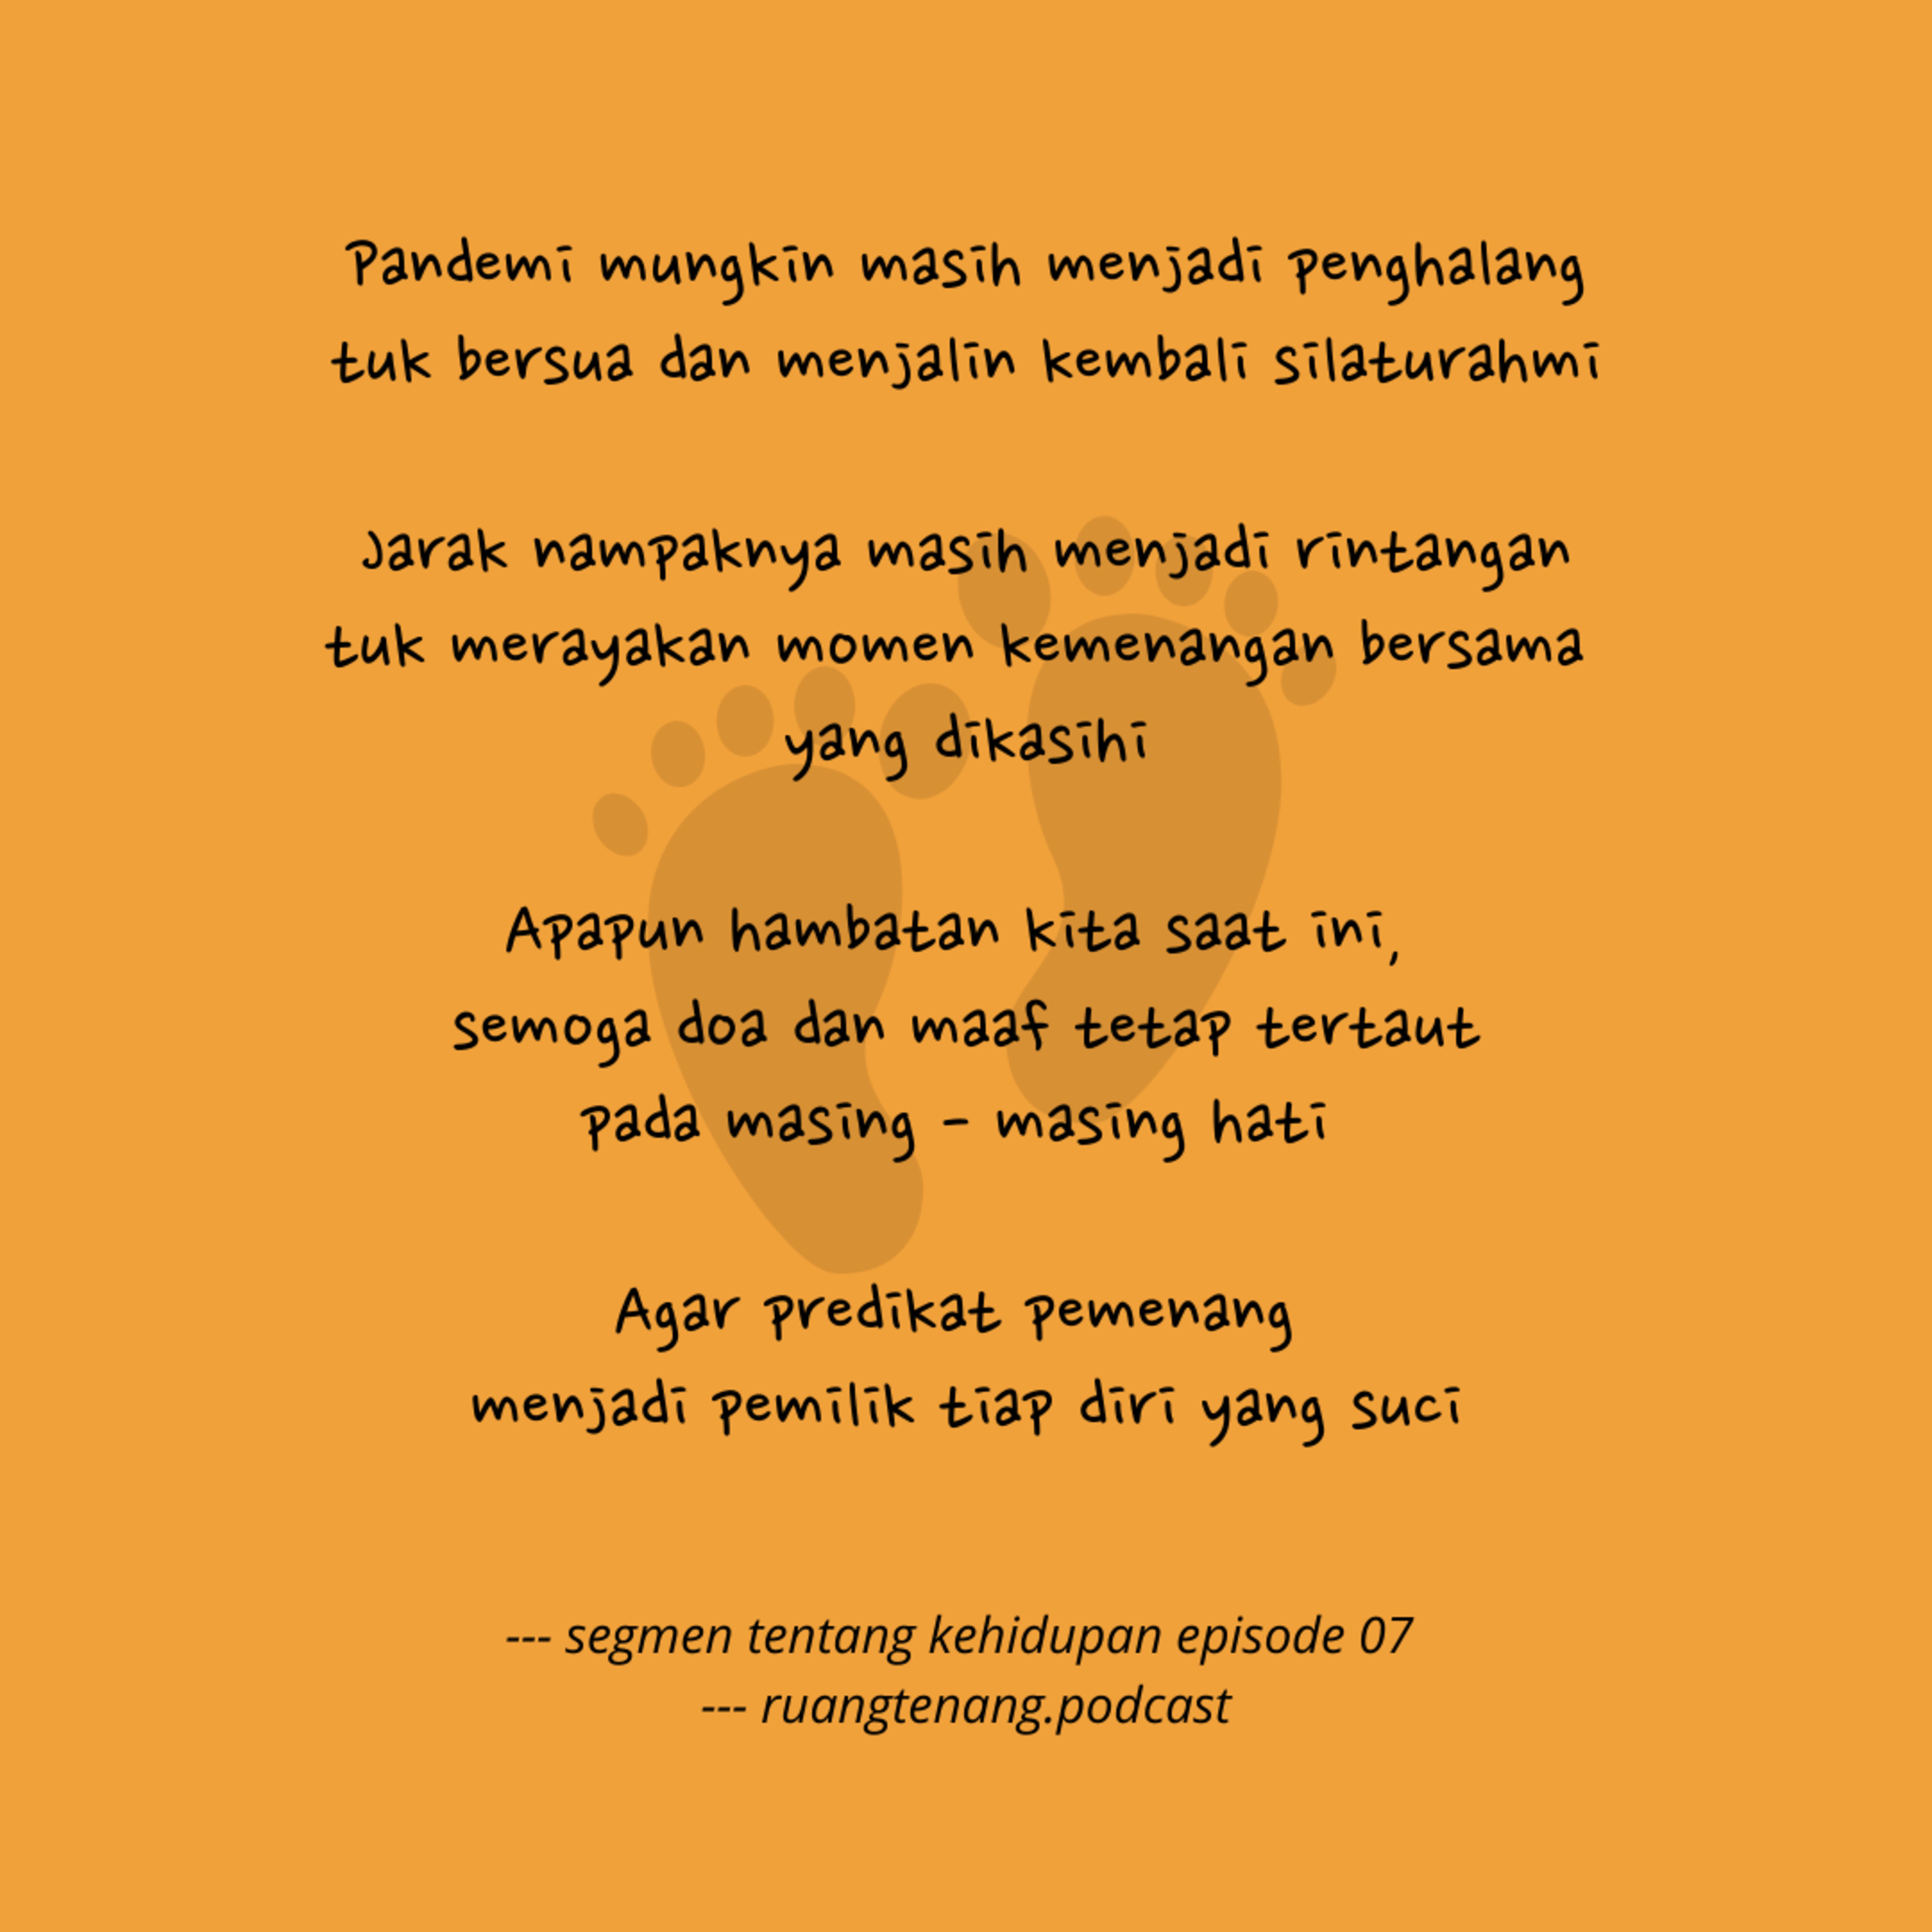 Pandemi mungkin masih menjadi penghalang
tuk bersua dan menjalin kembali silaturahmi
Jarak nampaknya masih menjadi rintangan
tuk merayakan momen kemenangan bersama
yang dikasihi
Apapun hambatan kita saat ini,
semoga doa dan maaf tetap tertaut
pada masing - masing hati
Agar predikat pemenang
menjadi pemilik tiap diri yang suci
--- segmen tentang kehidupan episode 07
--- ruangtenang.podcast